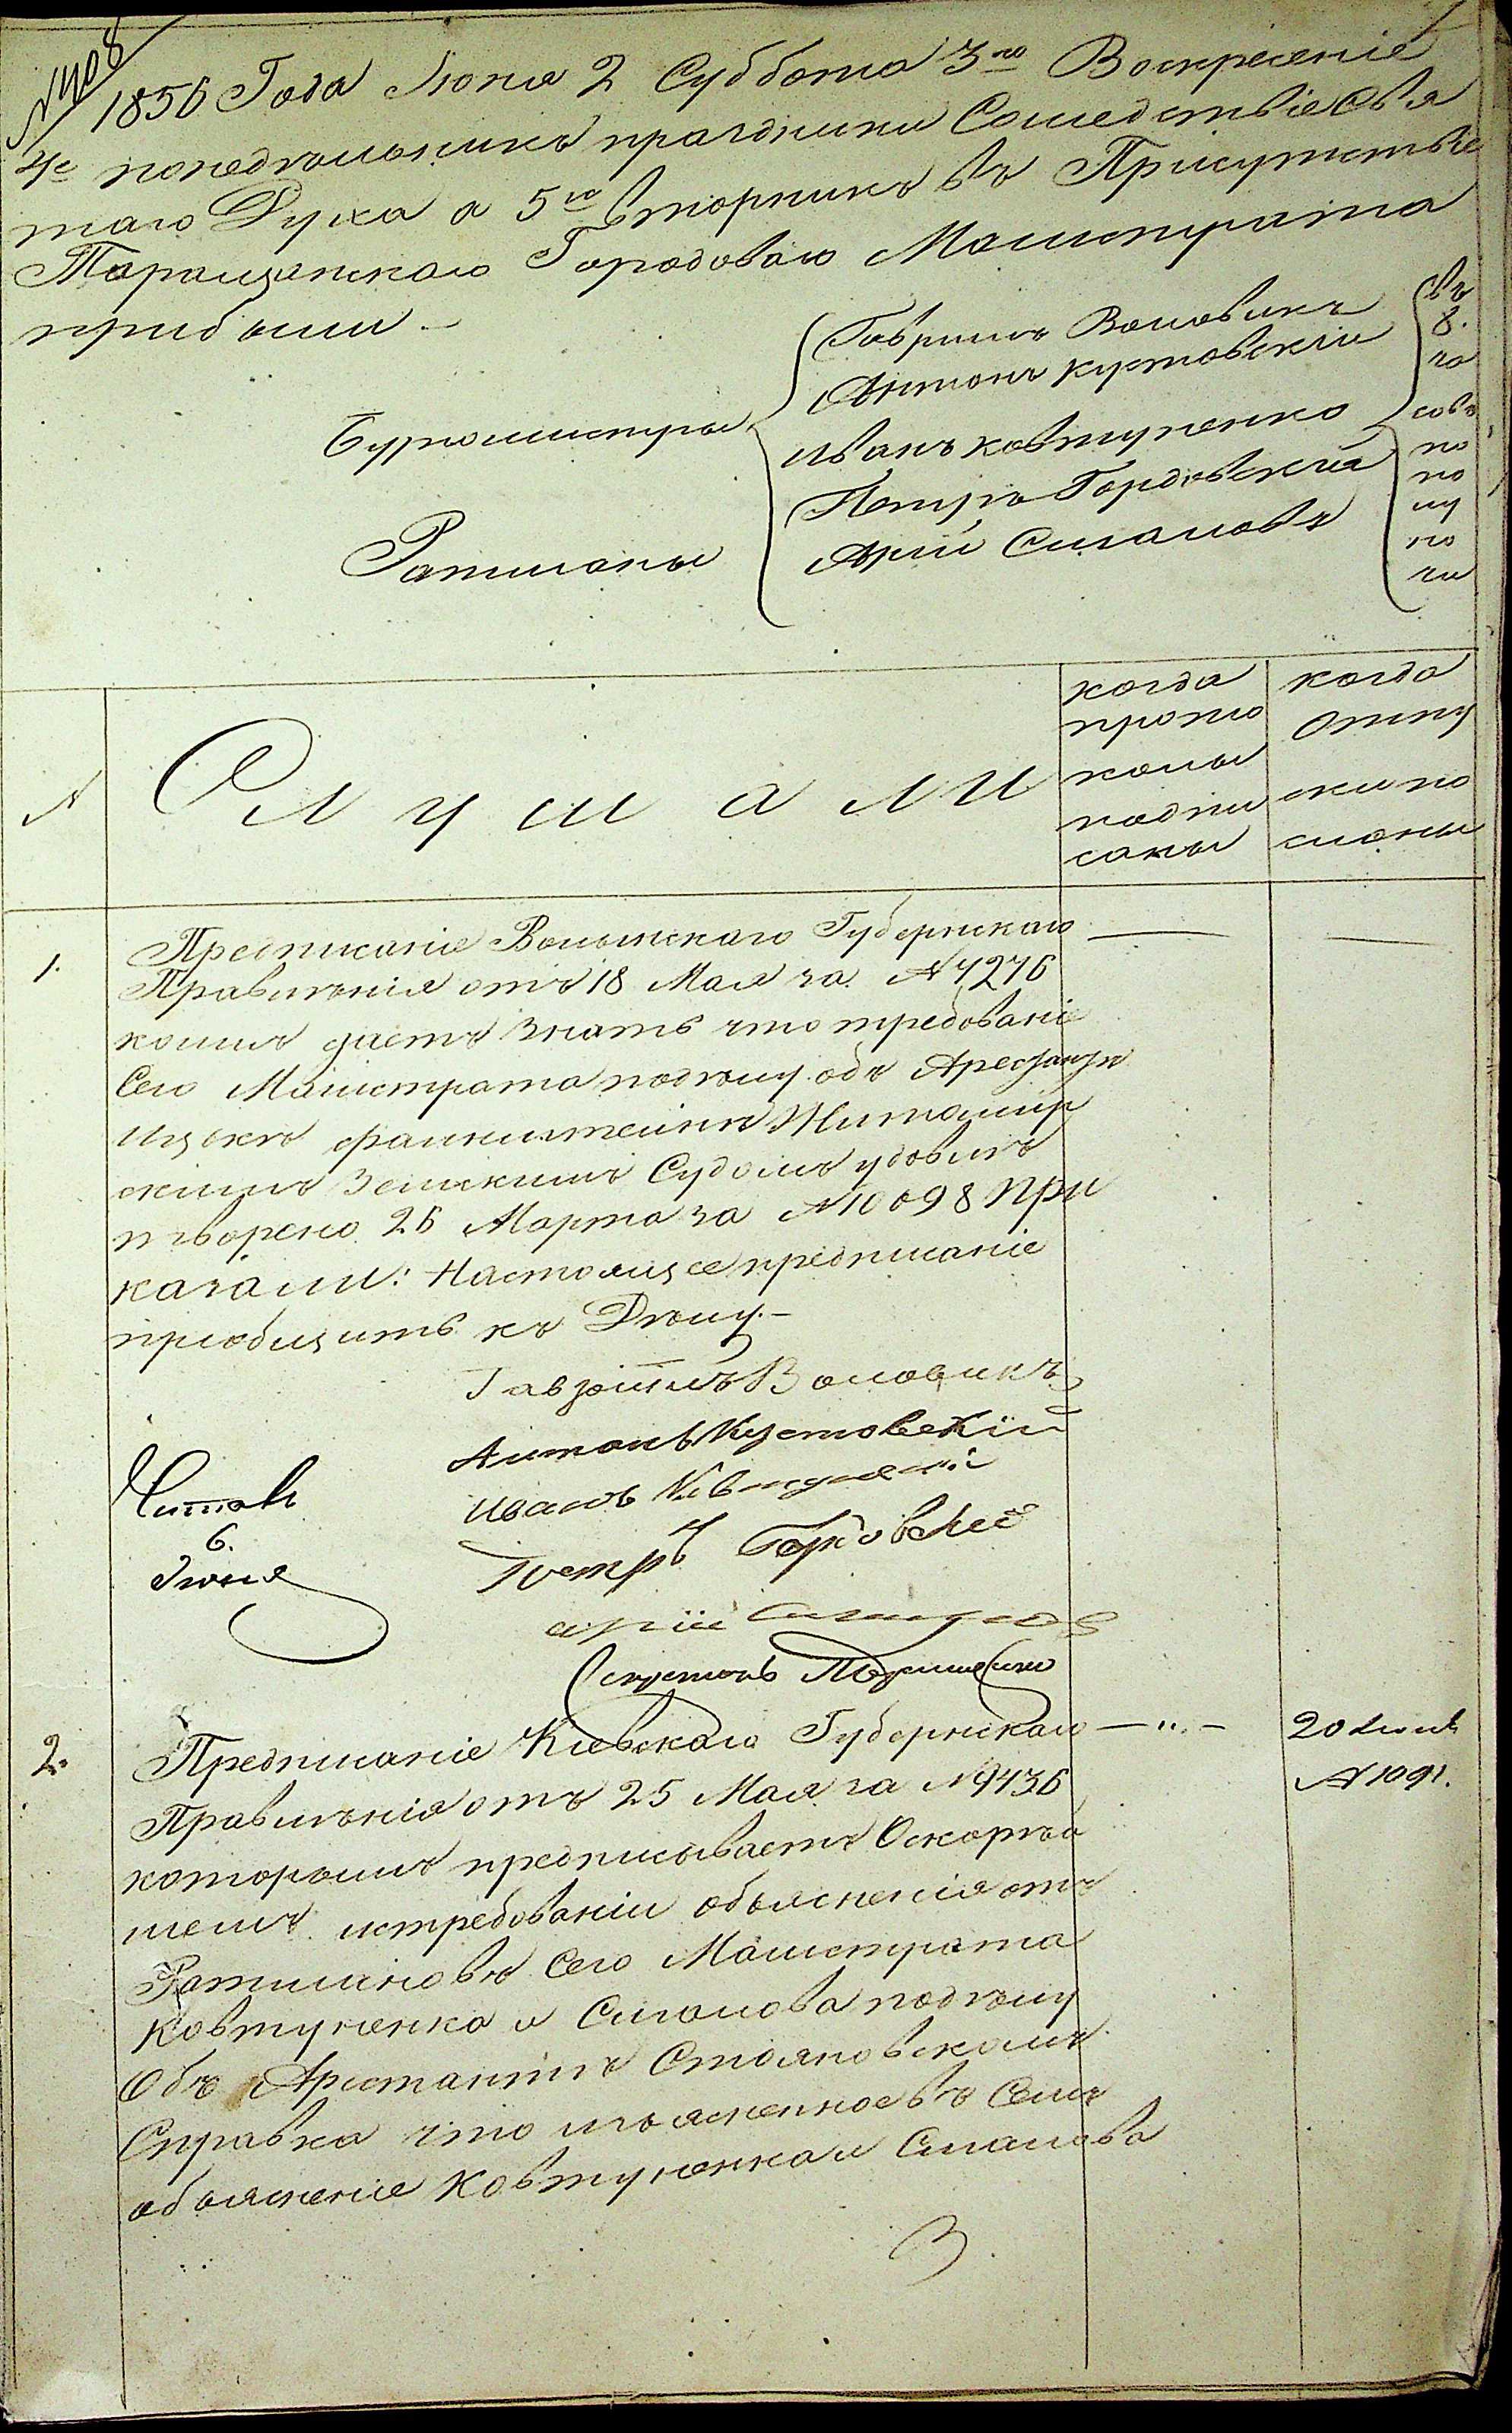 1856 Года Июня 2 Суббота 3го Воскресеніе
4е понедѣльникъ праздники Сошедствіе Свя
таго Духа а 5го вторникъ въ Присутствіе
Таращанскаго Городоваго Магистрата
прибыли
Бургомистры
Гаврилъ Воловикъ
Антонъ Кустовскій
Ратманы
Иванъ Ковтуненко
Петръ Гордовскій
Арій Сигаловъ
въ
8.
ча
совъ
по
по
лу
но
чи
№
Слушали
когда
прото
колы
подпи
саны
когда
отпу
ски по
сланы
1.
Предписаніе Волынскаго Губернскаго
Правленія отъ 18 Мая за №7276
коимъ даетъ знать что требованіе
Сего Магистрата по дѣлу объ Арестантѣ
Ицькѣ Житомир
скимъ Земскимъ Судомъ удовлѣ
творено 26 Марта за №10098 При
казали: Настоящее предписаніе
пріобщить къ Дѣлу.
Гавріилъ Воловикъ
Антонъ Кустовскій
Иванъ
Петръ Гордовскій
арій
Читалъ
6.
Июня
2.
Предписаніе Кіевскаго Губернскаго
Правленія отъ 25 Мая за №9436
которымъ предписываетъ О скорѣй
шемъ истребованіи объясненія отъ
Ратмановъ Сего Магистрата
Ковтуненка и Сигалова по дѣлу
Объ Арестантѣ Стояновскомъ
Справка что изъясненное въ Семъ
объясненіе Ковтуненка и Сигалова
20 Июня
№1091.